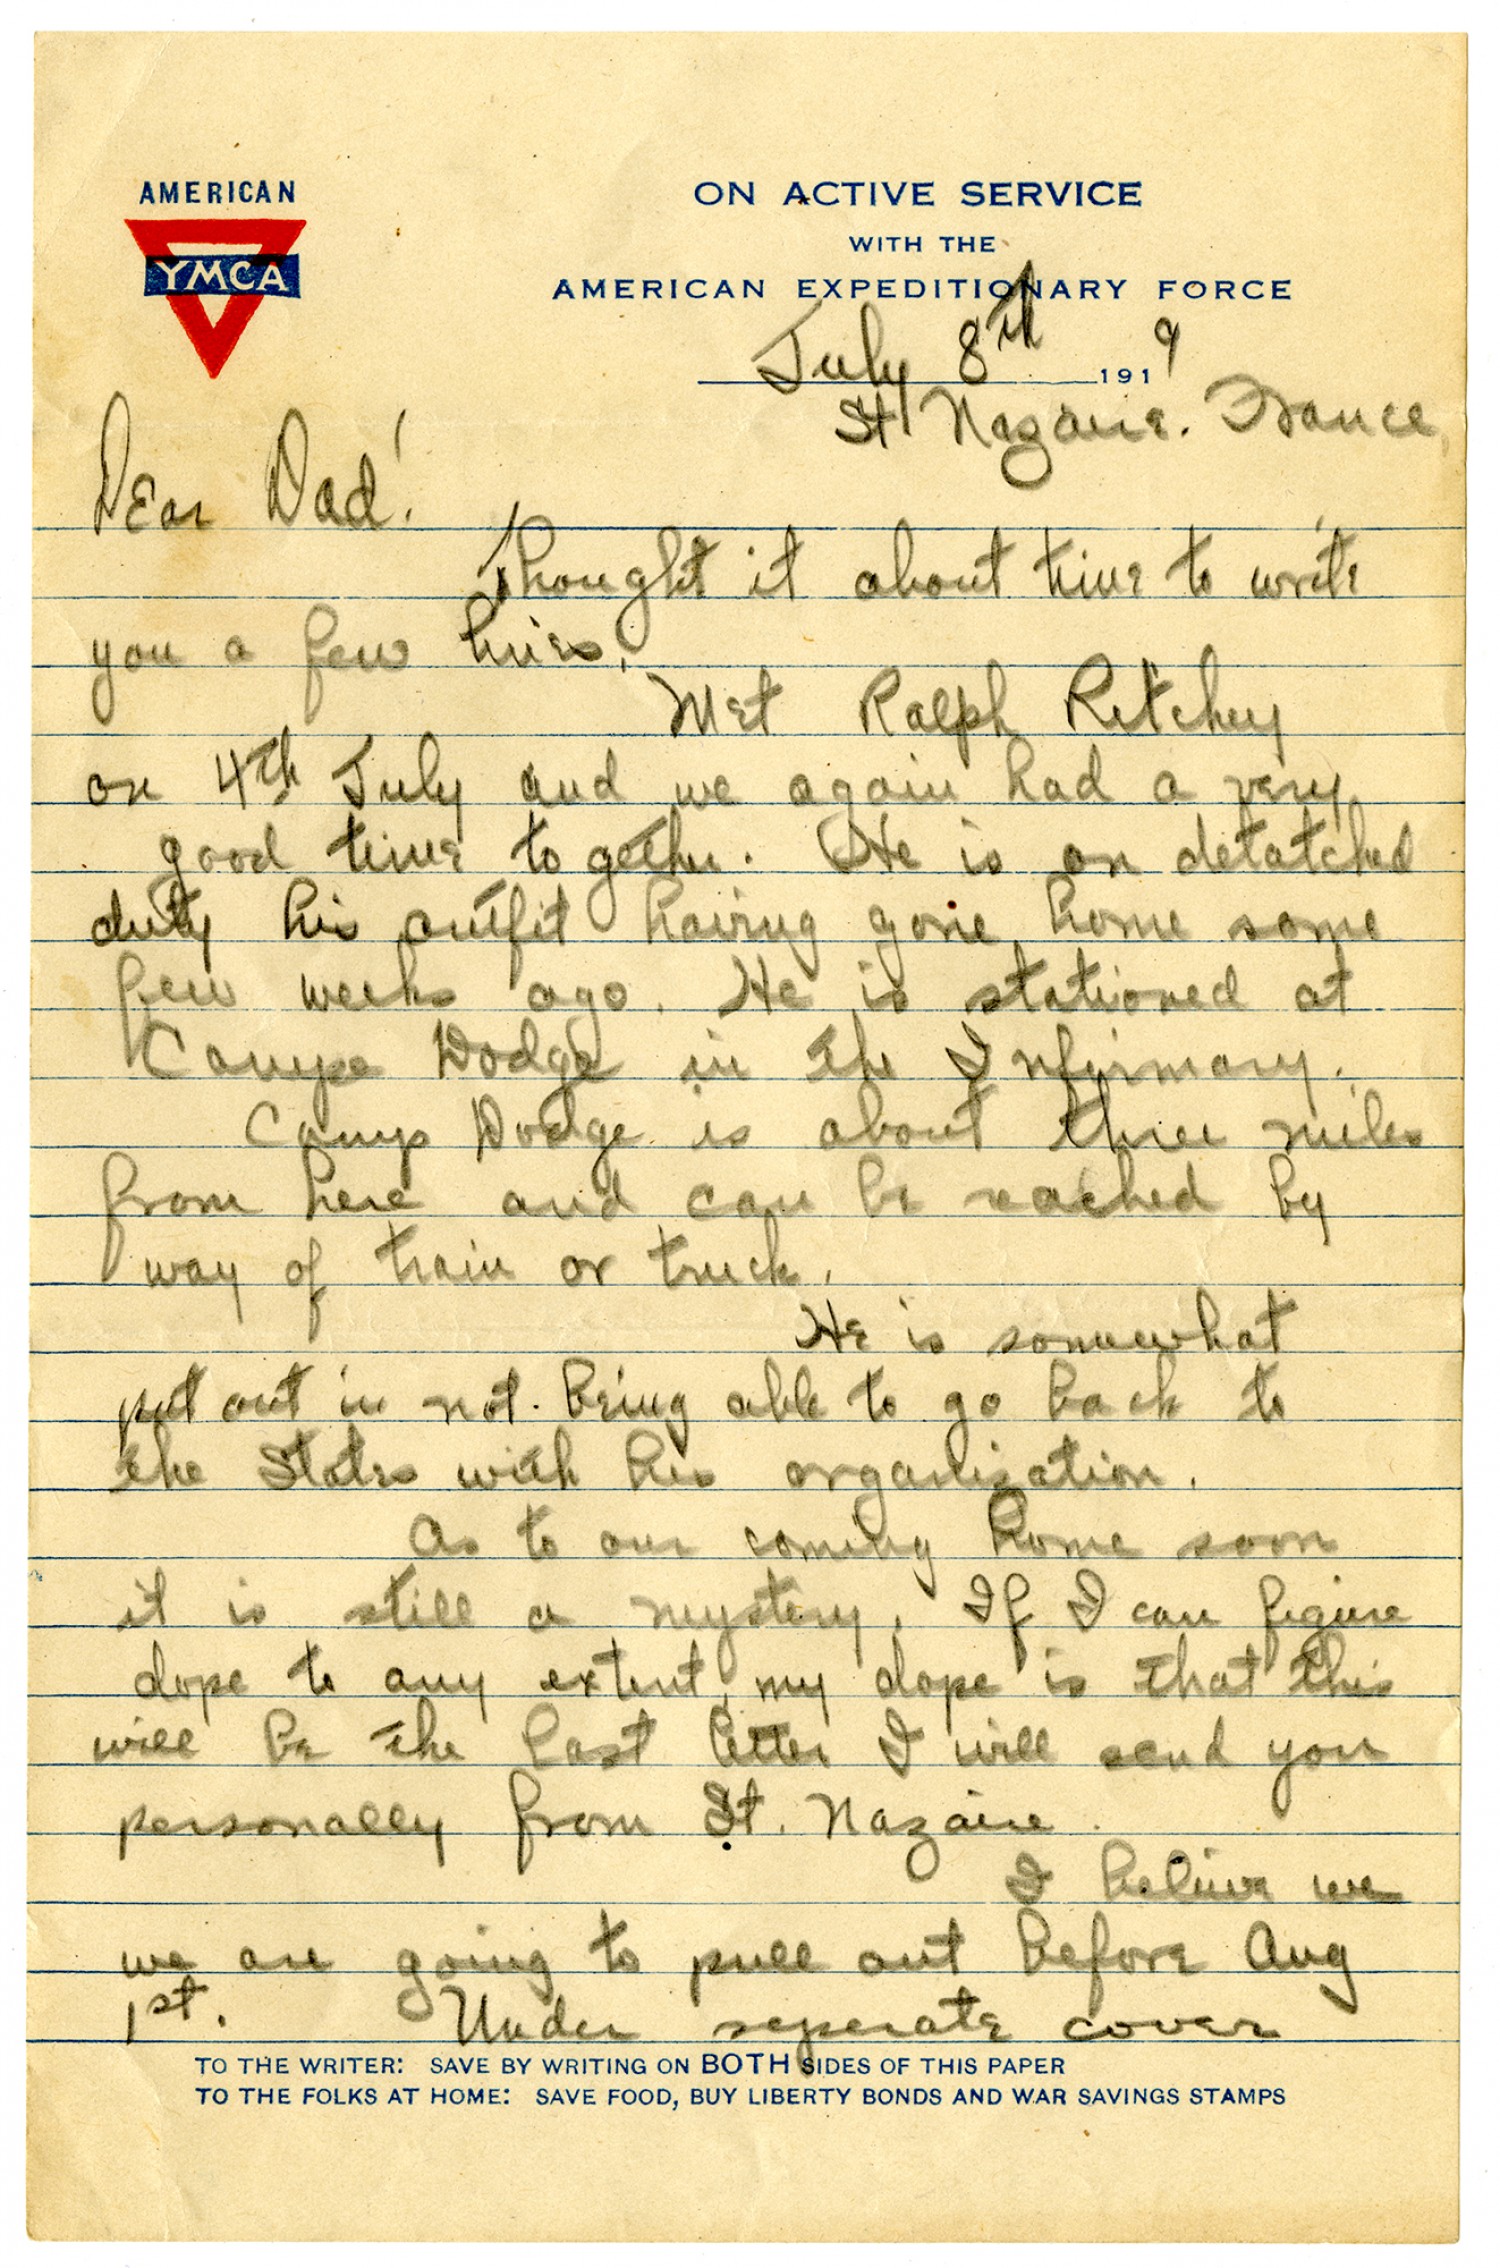 AMERICAN
YMCA
ON ACTIVE SERVICE
WITH THE
AMERICAN EXPEDITIONARY FORCE
July 8th 1919
St Nazaire. France,
Dear Dad!
Thought it about time to write
you a few lines.
Met Ralph Ritchey
on 4th July and we again had a very
good time together. He is on detatched
duty his outfit having gone home some
few weeks ago. He is stationed at
Campe Dodge in the Infirmary.
Camp Dodge is about three miles
from here and can be reached by
way of train or truck.
He is somewhat
put out in not being able to go back to
the States with his organisation.
As to our coming home soon
it is still a mystery. If I can figure
dope to any extent, my dope is that this
will be the last letter I will send you
personally from St. Nazaire.
I believe we
we are going to pull out before Aug
1st. Under seperate cover
TO THE WRITER: SAVE BY WRITING ON BOTH SIDES OF THIS PAPER
TO THE FOLKS AT HOME: SAVE FOOD, BUY LIBERTY BONDS AND WAR SAVINGS STAMPS